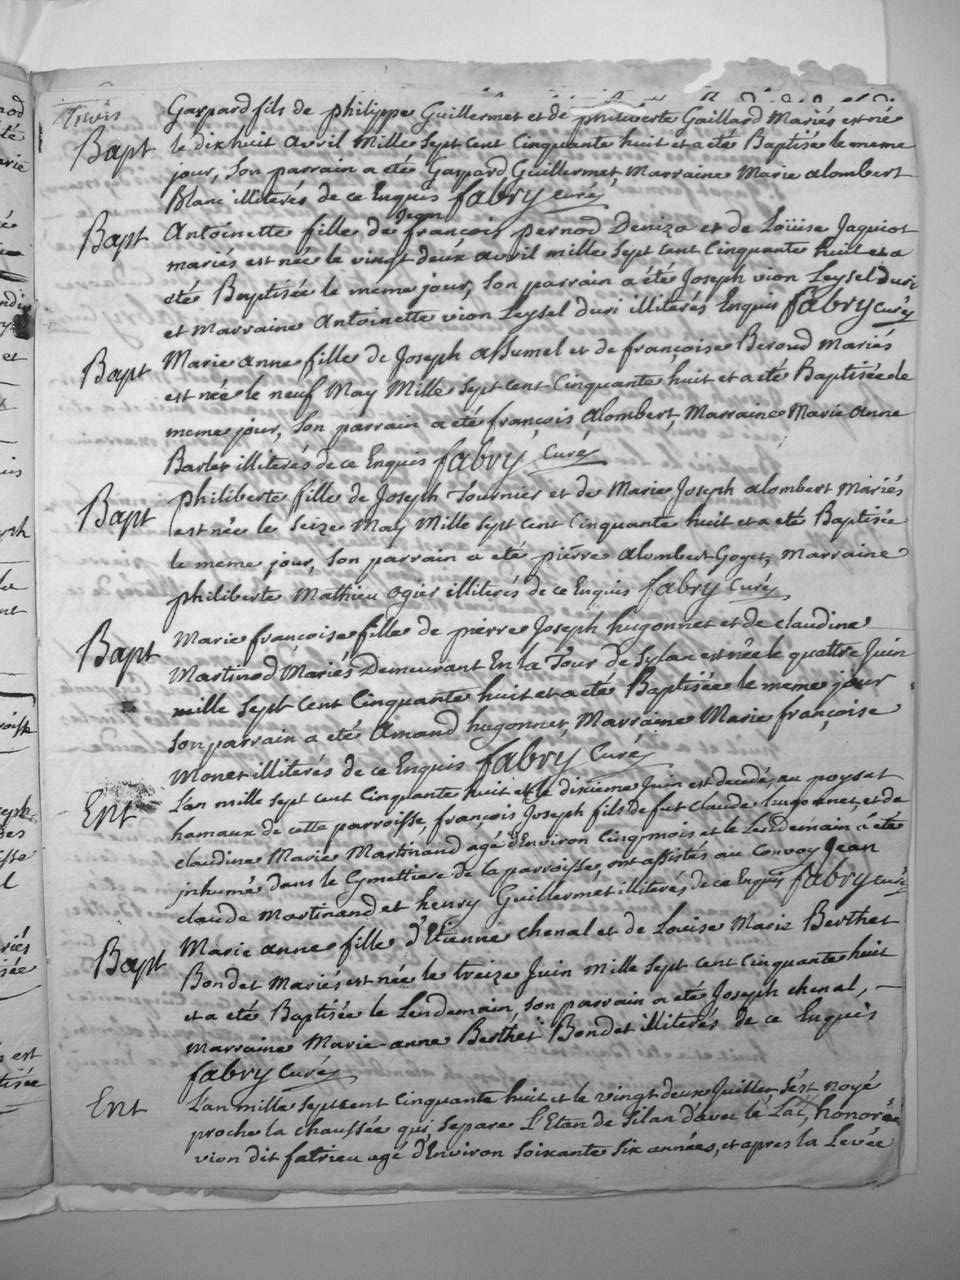 trois
Gaspard fils de philippe Guillermet et de philiberte Gaillard Mariés est né
Bapt le dixhuit avril Mille Sept cent Cinquante huit et a été Baptisé le meme
jour, Son parrain a été Gaspard Guillermet, Marraine Marie alombert
Blanc illiterés de ce Enquis fabry Curé
Jean
Bapt Antoinette fille de françois pernod Deniza et de Loüise Jaquiot
mariés est née le vingt deux avril mille Sept cent Cinquante huit et a
été Baptisée le meme jour, Son parrain a été Joseph vion Leysel duri
et Marraine Antoinette vion Leysel duri illiterés Enquis fabry Curé
Bapt Marie anne fille de Joseph assumel et de françoise Beroud Mariés
est née le neuf May Mille Sept cent Cinquante huit et a été Baptisée le
meme jour, Son parrain a été françois alombert, Marraine Marie anne
Barlet illiterés de ce Enquis fabry Curé
Bapt philiberte fille de Joseph Tournier et de Marie Joseph alombert Mariés
est née le Seize May Mille Sept cent Cinquante huit et a été Baptisée
le meme jour, Son parrain a été pierre alombert Goget, Marraine
philiberte Mathieu ogier illiterés de ce Enquis fabry Curé
Bapt Marie françoise fille de pierre Joseph hugonnet et de claudine
Martinod Mariés Demeurant En la Tour de Sylan est née le quattre Juin
mille Sept cent Cinquante huit et a été Baptisée le meme jour
Son parrain a été Amand hugonnet, Marraine Marie françoise
Monet illiterés de ce Enquis fabry Curé
Ent L'an mille Sept cent Cinquante huit et le dixieme Juin est decedé, au poysat
hamaux de cette parroisse, françois Joseph fils de fut Claude hugonnet et de
claudine Marie Martinand agé d'Environ Cinq mois et le Lendemain a été
jnhumé dans le Cymettiere de la parroisse, ont assistés au Convoy Jean
claude Martinand et henry Guillermet illiterés de ce Enquis fabry Curé
Bapt Marie anne fille d'Etienne Chenal et de Louise Marie Berthet
Bondet Mariés est née le treize Juin mille Sept cent Cinquante huit
et a été Baptisée le Lendemain, Son parrain a été Joseph chenal, —
Marraine Marie-anne Berthet Bondet illiterés de ce Enquis
fabry Curé
Ent L'an mille Sept cent Cinquante huit et le vingt deux Juillet s'est noyé
proche la chaussée qui Separe L'Etan de Silan d'avec le Lac, honoré
vion dit fatrieu agé d'Environ Soixante Six années, et apres la Levée